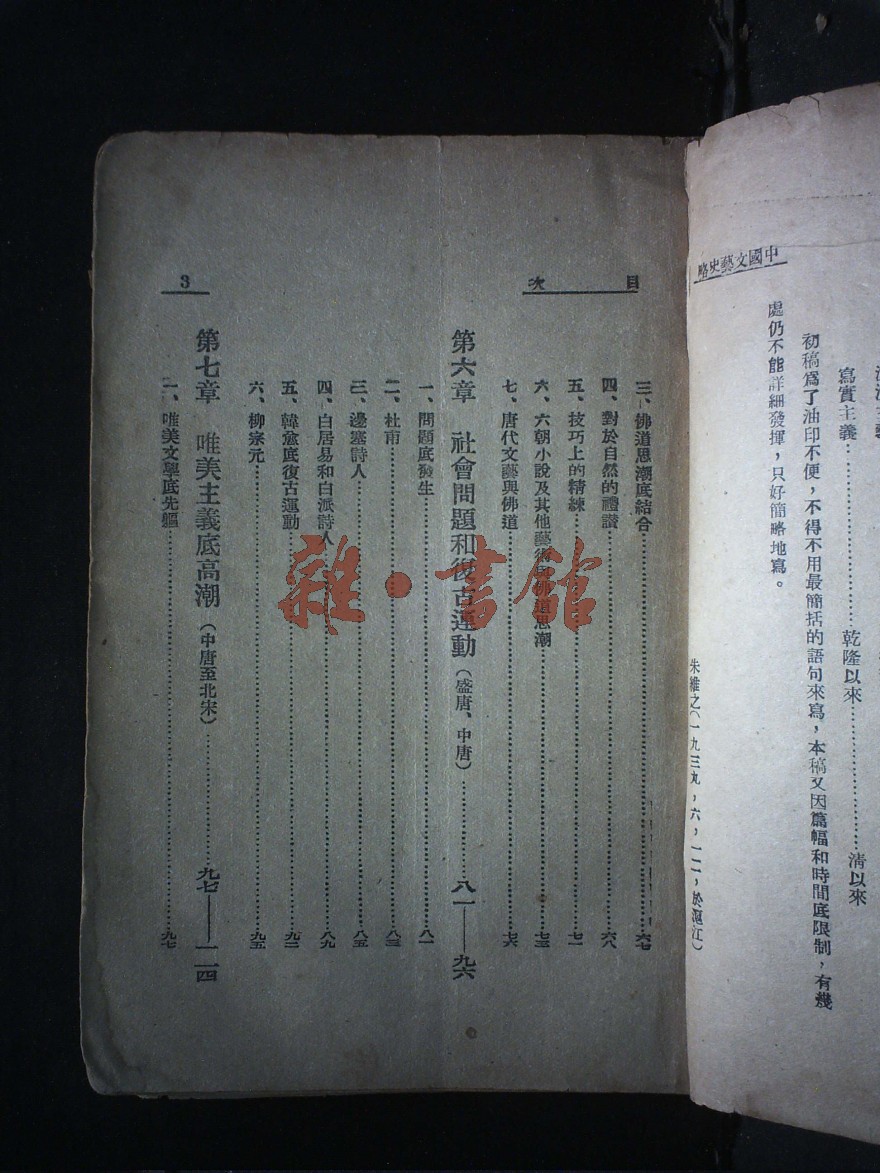 中國文藝史略
寫實主義……乾隆以來……清以來
初稿爲了油印不便，不得不用最簡括的語句來寫，本稿又因篇幅和時間底限制，有幾
處仍不能詳細發揮，只好簡略地寫。
朱維之(一九三九，六，一二，於滬江)
目次
3
三、佛道思潮底結合……六七
四、對於自然的禮讚……六八
五、技巧上的精練……七一
六、六朝小說及其他藝術與佛道思潮……七三
七、唐代文藝與佛道……七六
第六章 社會問題和復古運動(盛唐、中唐)……八一——九六
一、問題底發生……八一
二、杜甫……八三
三、邊塞詩人……八五
四、白居易和白派詩人……八九
五、韓愈底復古運動……九二
六、柳宗元……九五
第七章 唯美主義底高潮(中唐至北宋)……九七——一一四
一、唯美文學底先軀……九七
雜·書館